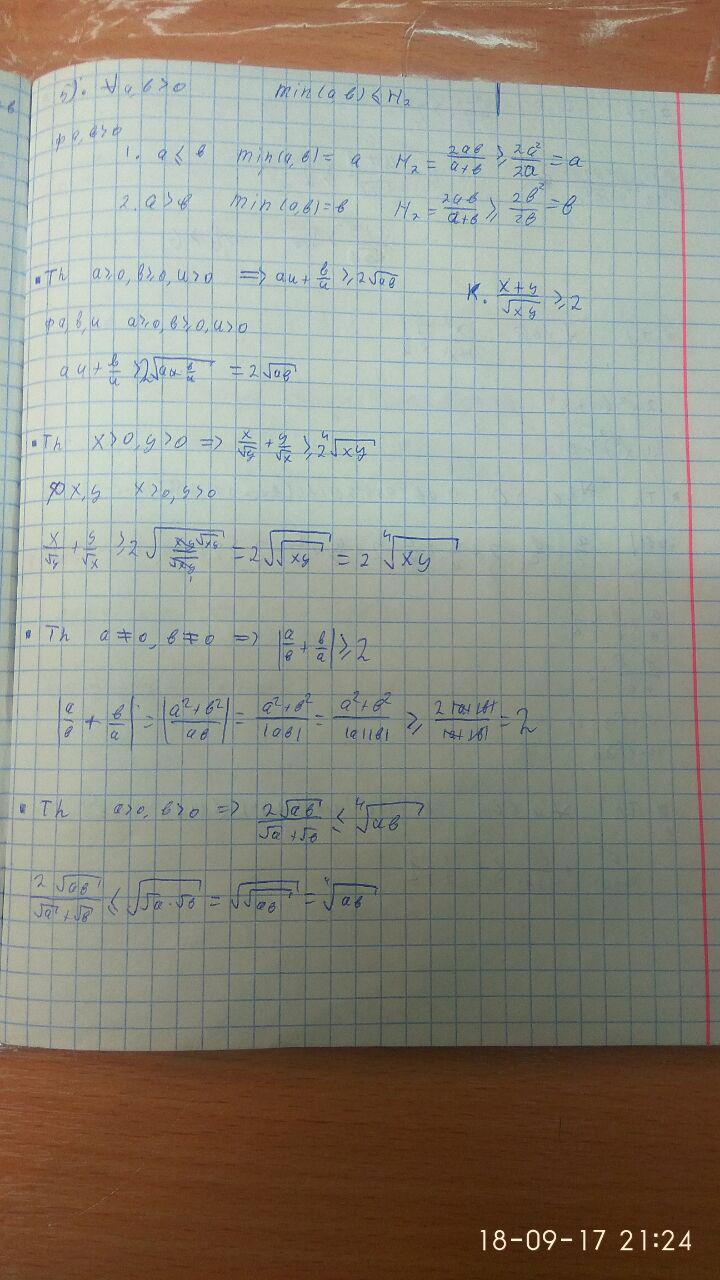 5). ∀a,b>0 min(a,b) ≤ H₂
ф a,b>0
1. a ≤ b min(a,b) = a H₂ = 2ab/(a+b) ≥ 2a²/2a = a
2. a > b min(a,b) = b H₂ = 2ab/(a+b) ≥ 2b²/2b = b
▪ Th a≥0, b≥0, u>0 => au + b/u ≥ 2√ab
К. (x+y)/√xy ≥ 2
ф a,b,u a≥0, b≥0, u>0
au + b/u ≥ 2√(au·b/u) = 2√ab
▪ Th x>0, y>0 => x/√y + y/√x ≥ 2 ⁴√xy
ф x,y x>0, y>0
x/√y + y/√x ≥ 2√(xy√xy/√xy) = 2√√xy = 2 ⁴√xy
▪ Th a≠0, b≠0 => |a/b + b/a| ≥ 2
|a/b + b/a| = |(a²+b²)/ab| = (a²+b²)/|ab| = (a²+b²)/|a||b| ≥ 2|a||b|/|a||b| = 2
▪ Th a>0, b>0 => 2√ab/(√a+√b) ≤ ⁴√ab
2√ab/(√a+√b) ≤ √(√a·√b) = √√ab = ⁴√ab
18-09-17 21:24